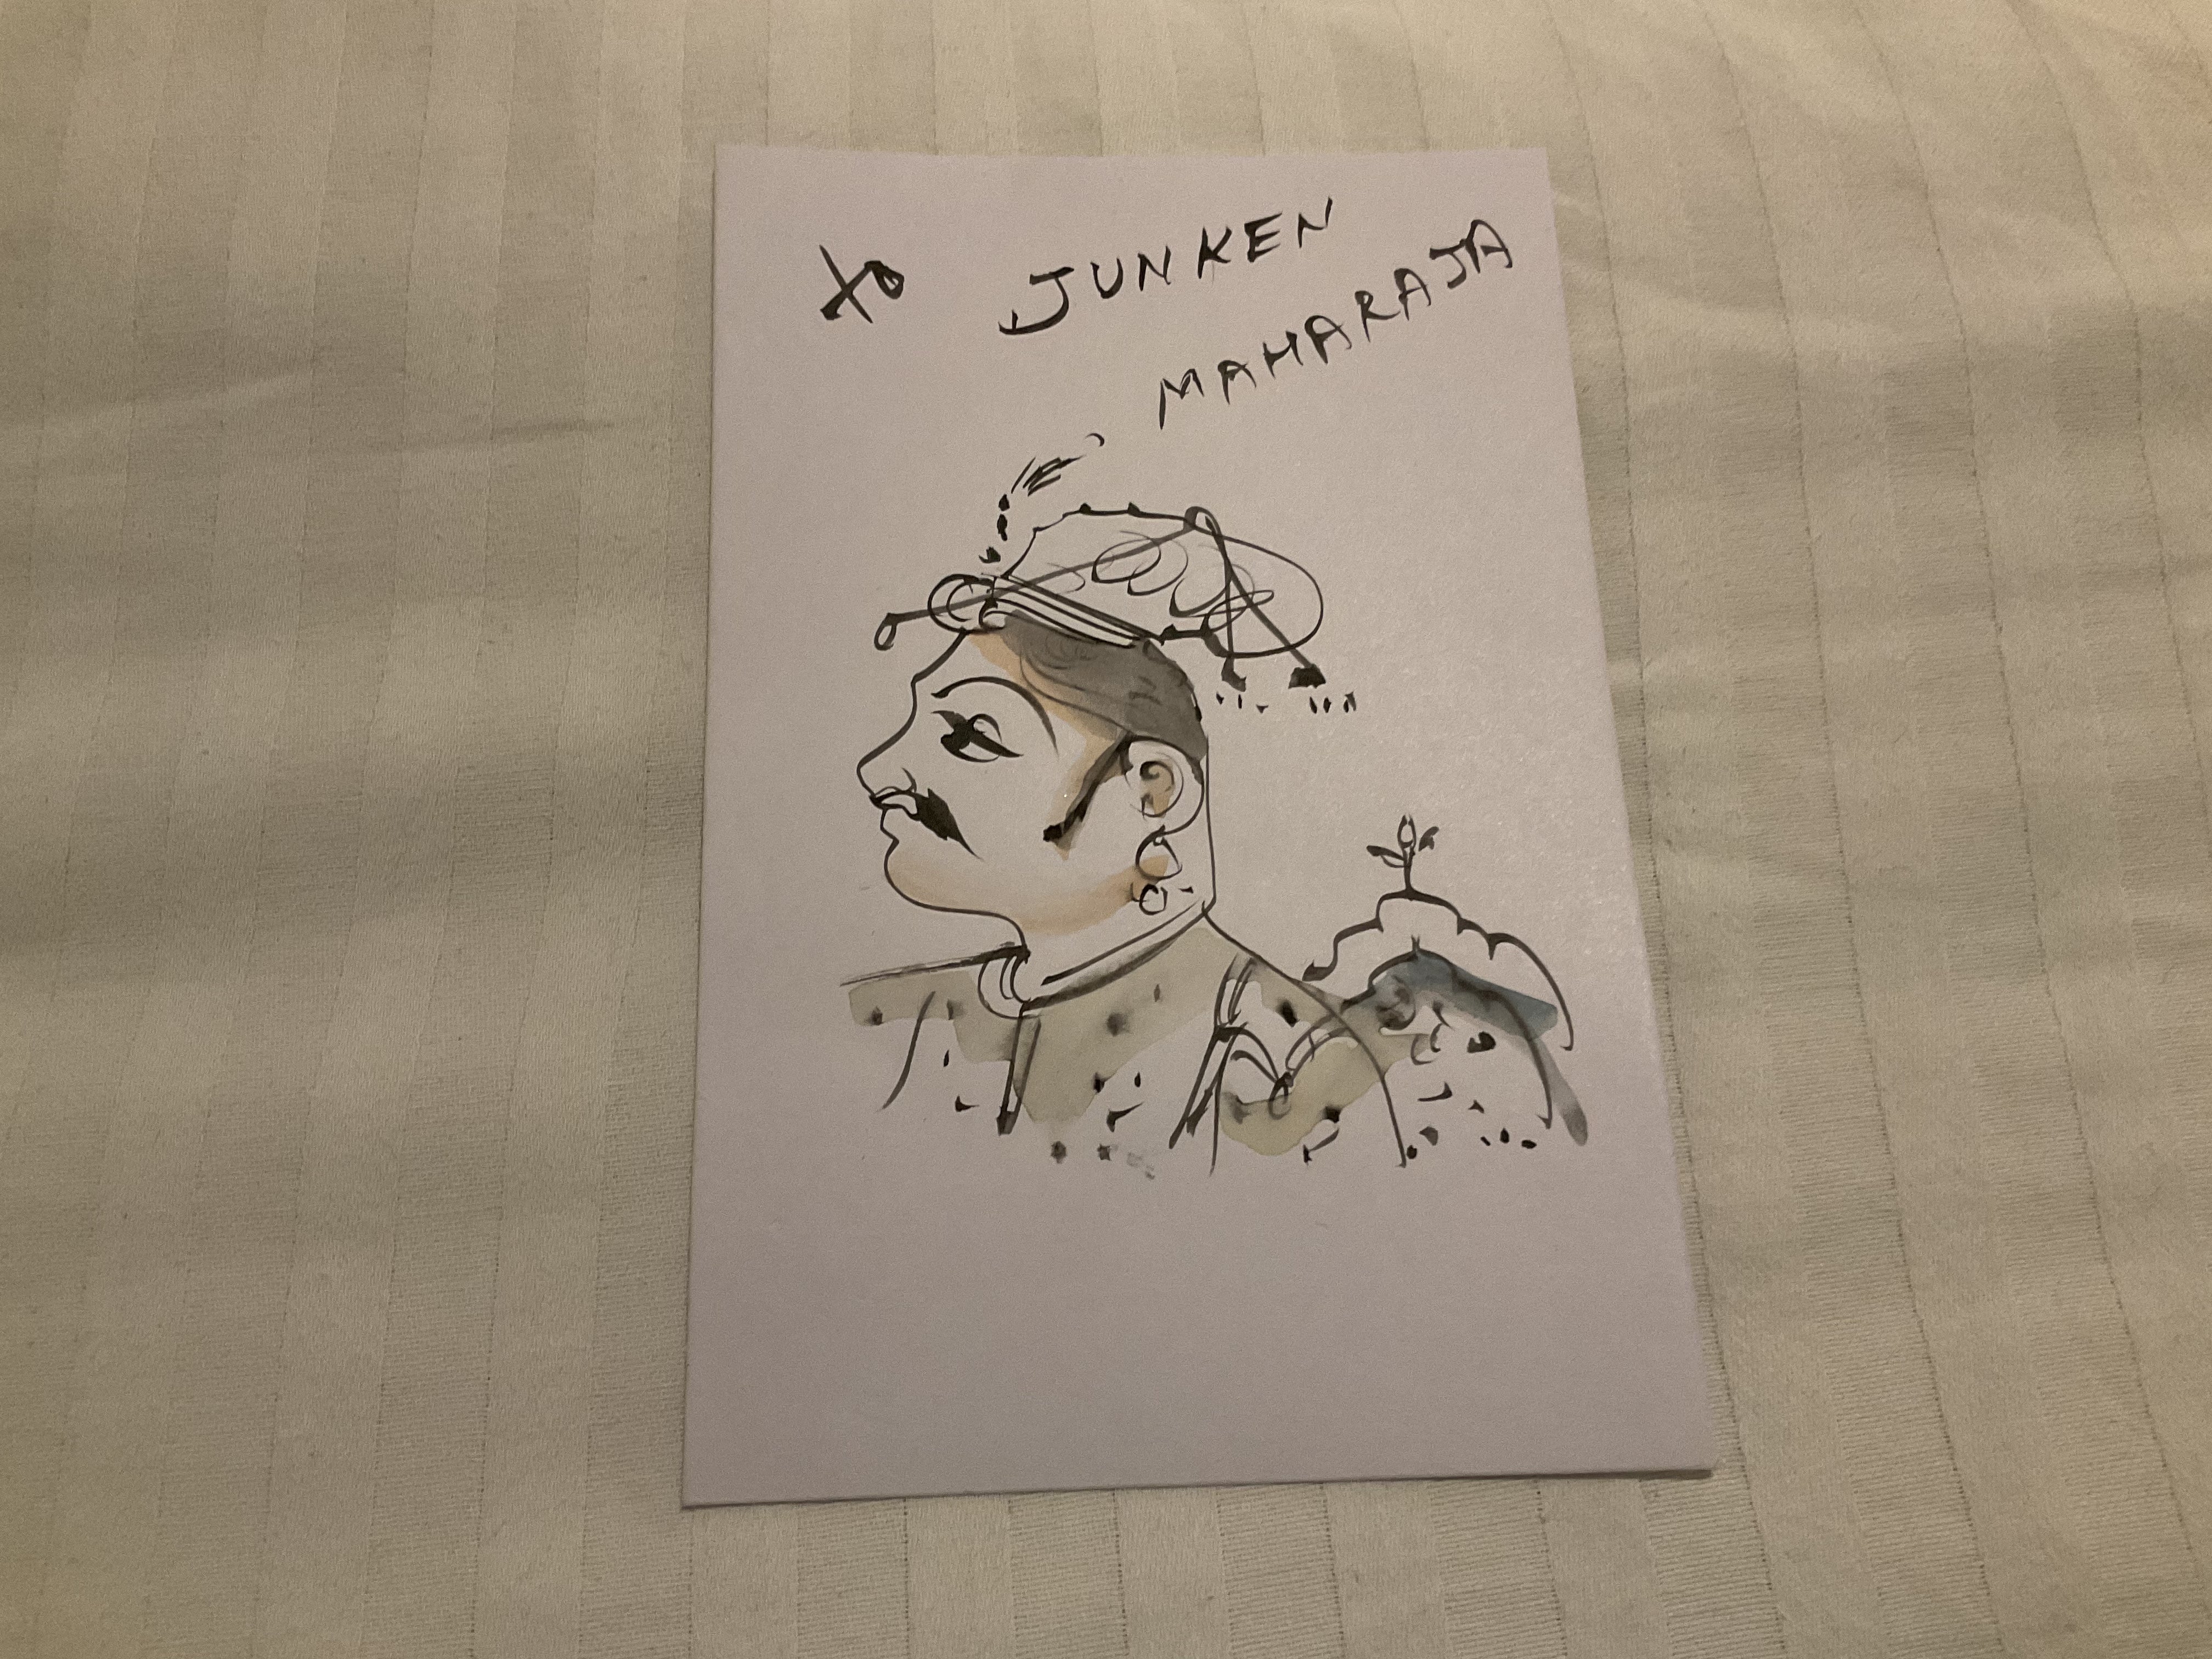 to JUNKEN
MAHARAJA